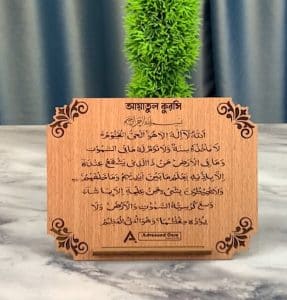 আয়াতুল কুরসি
اَللهُ لَآ اِلٰهَ اِلَّا هُوَ اَلْحَيُّ الْقَيُّوْمُ
لَا تَأْخُذُهٗ سِنَةٌ وَّلَا نَوْمٌ لَهٗ مَا فِي السَّمٰوٰتِ
وَمَا فِي الْاَرْضِ مَنْ ذَا الَّذِيْ يَشْفَعُ عِنْدَهٗٓ
اِلَّا بِاِذْنِهٖ يَعْلَمُ مَا بَيْنَ اَيْدِيْهِمْ وَمَا خَلْفَهُمْ
وَلَا يُحِيْطُوْنَ بِشَيْءٍ مِّنْ عِلْمِهٖٓ اِلَّا بِمَا شَآءَ
وَسِعَ كُرْسِيُّهُ السَّمٰوٰتِ وَالْاَرْضَ وَلَا
يَـُٔوْدُهٗ حِفْظُهُمَا وَهُوَ الْعَلِيُّ الْعَظِيْمُ